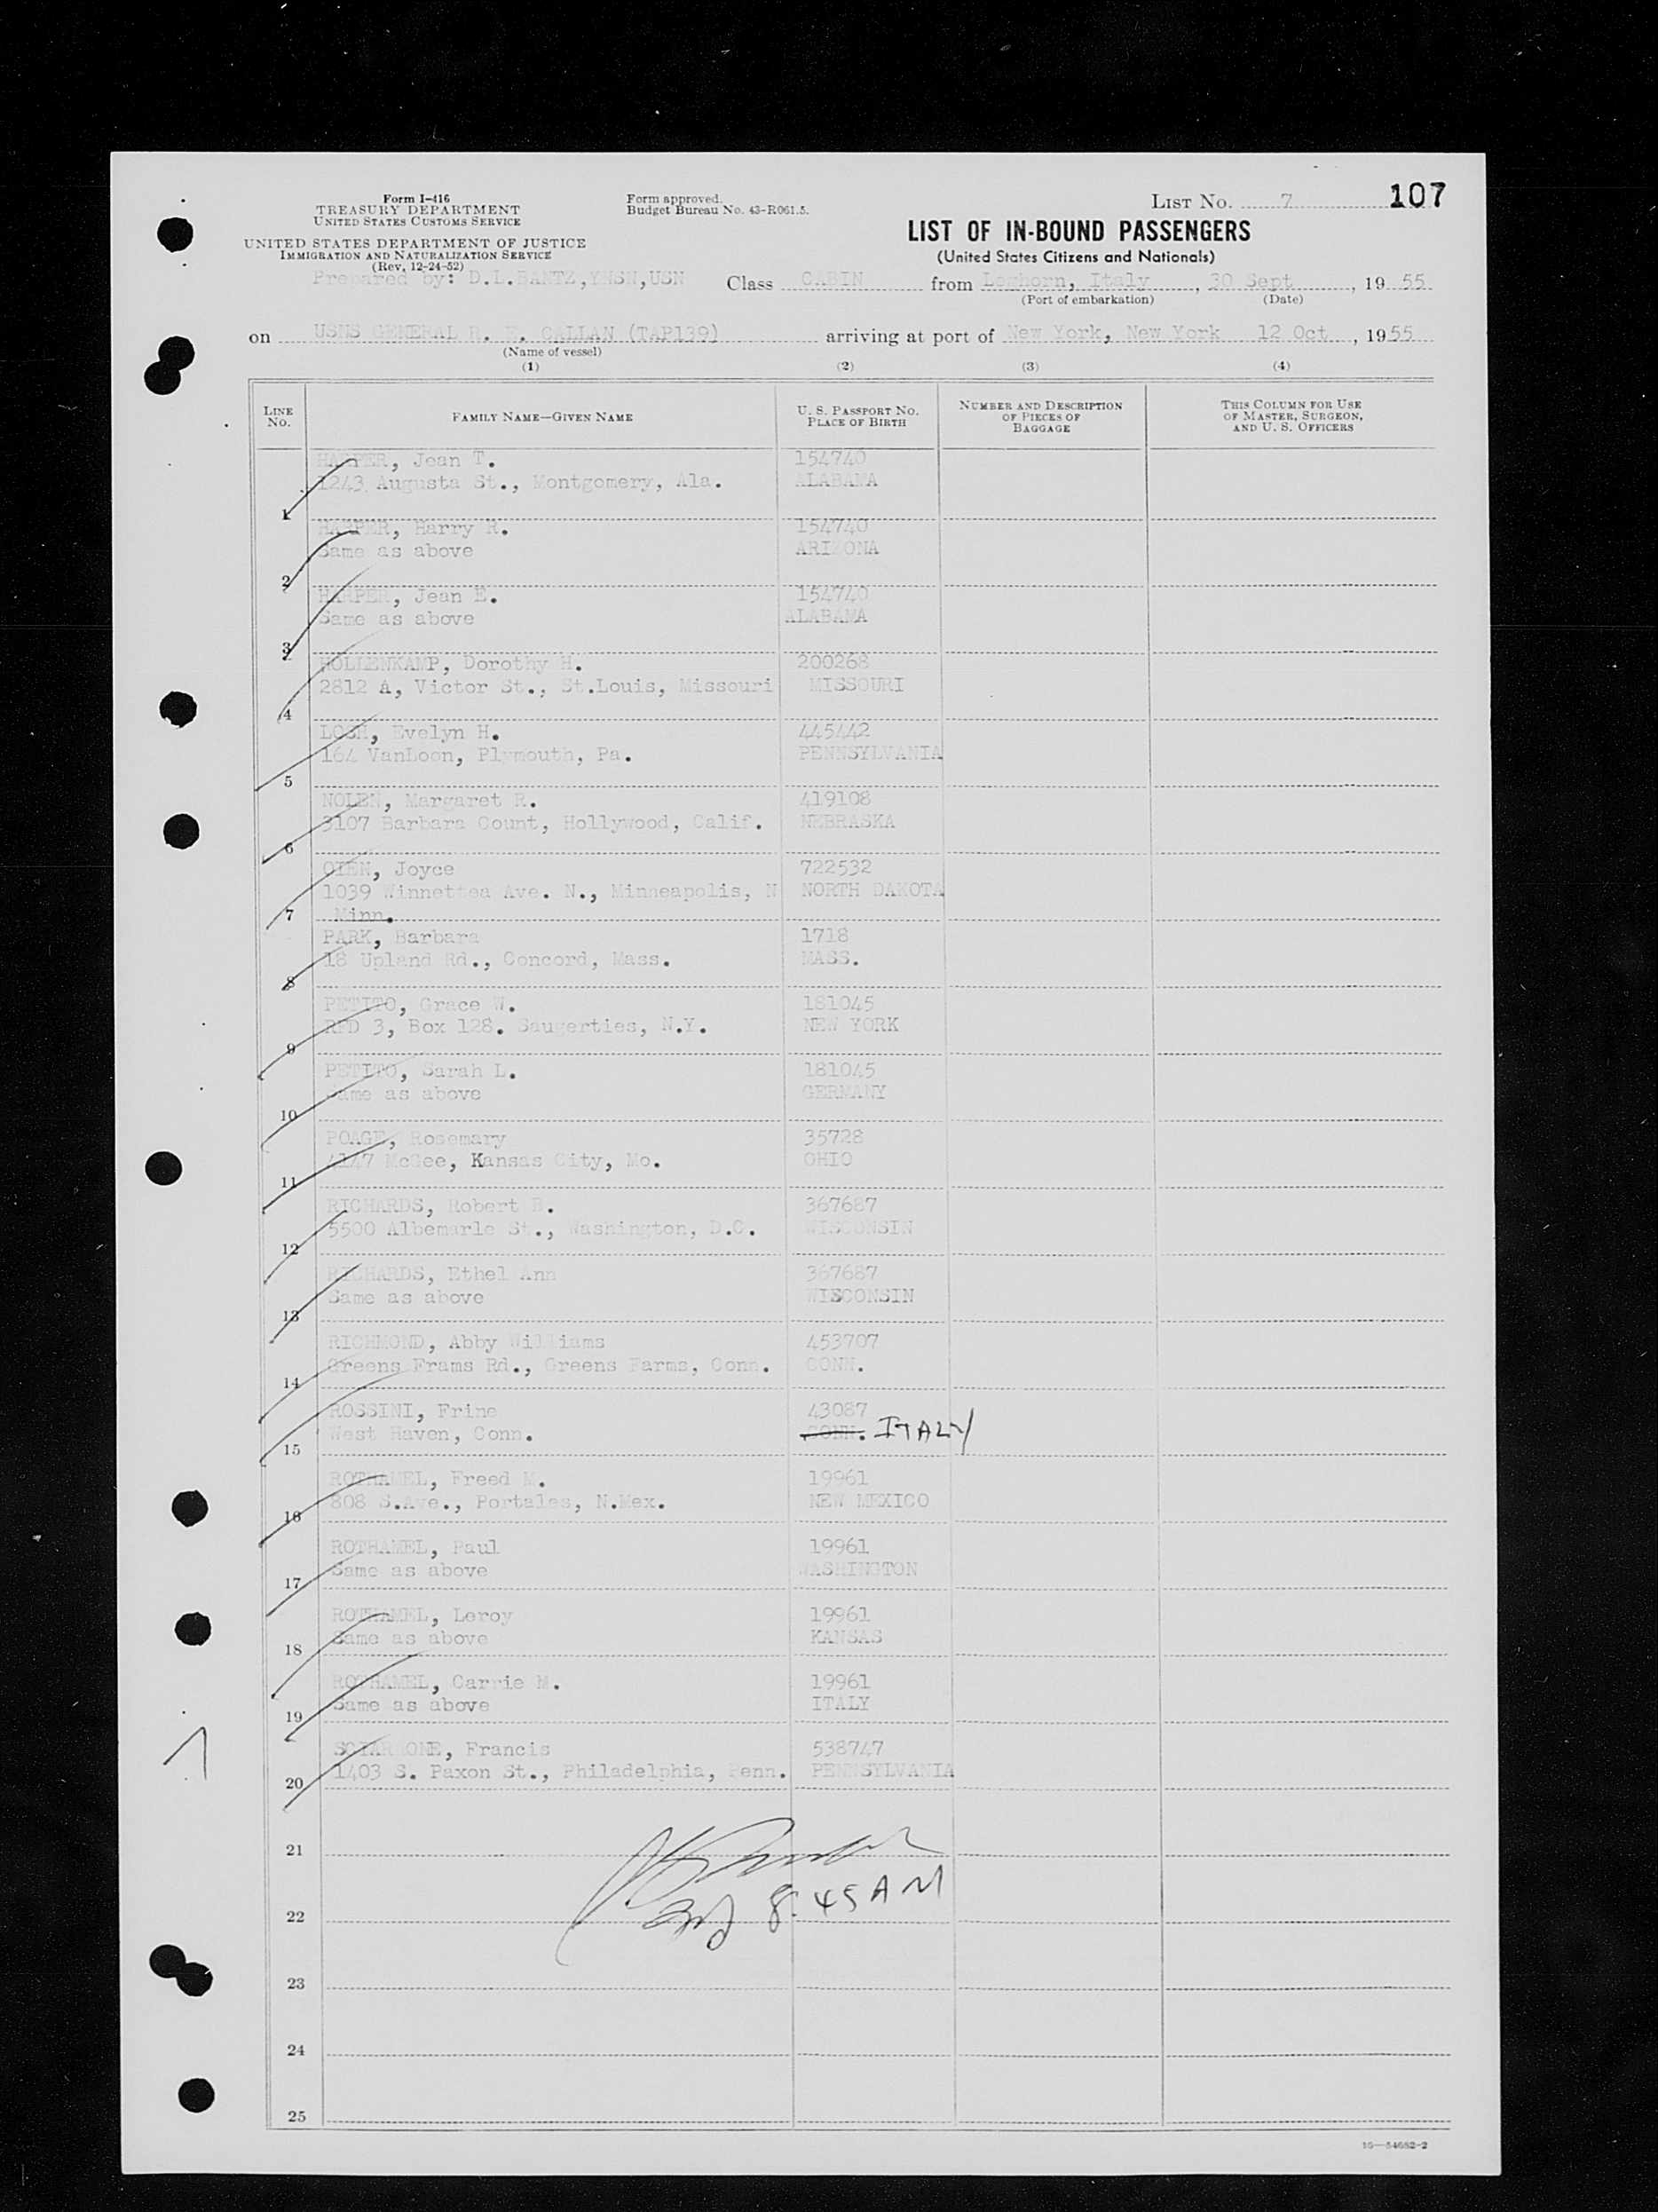 Form I-416
TREASURY DEPARTMENT
UNITED STATES CUSTOMS SERVICE
UNITED STATES DEPARTMENT OF JUSTICE
IMMIGRATION AND NATURALIZATION SERVICE
(Rev. 12-24-52)
Form approved.
Budget Bureau No. 43-R061.5.
LIST NO. 7 107
LIST OF IN-BOUND PASSENGERS
(United States Citizens and Nationals)
Prepared by: D.L.BANTZ,YNSN,USN Class CABIN from Leghorn, Italy, 30 Sept, 1955
(Port of embarkation) (Date)
on USNS GENERAL R. E. CALLAN (TAP139) arriving at port of New York, New York 12 Oct, 1955
(Name of vessel)
(1) (2) (3) (4)
LINE NO. FAMILY NAME—GIVEN NAME U. S. PASSPORT NO. PLACE OF BIRTH NUMBER AND DESCRIPTION OF PIECES OF BAGGAGE THIS COLUMN FOR USE OF MASTER, SURGEON, AND U. S. OFFICERS
HARPER, Jean T. 154740
1243 Augusta St., Montgomery, Ala. ALABAMA
1
HARPER, Harry R. 154740
Same as above ARIZONA
2
HARPER, Jean E. 154740
Same as above ALABAMA
3
HOLLENKAMP, Dorothy H. 200268
2812 A, Victor St., St.Louis, Missouri MISSOURI
4
LOSH, Evelyn H. 445442
164 VanLoon, Plymouth, Pa. PENNSYLVANIA
5
NOLEN, Margaret R. 419108
3107 Barbara Count, Hollywood, Calif. NEBRASKA
6
OIEN, Joyce 722532
1039 Winnettea Ave. N., Minneapolis, N NORTH DAKOTA
7 Minn.
PARK, Barbara 1718
18 Upland Rd., Concord, Mass. MASS.
8
PETITO, Grace W. 181045
RFD 3, Box 128. Saugerties, N.Y. NEW YORK
9
PETITO, Sarah L. 181045
Same as above GERMANY
10
POAGE, Rosemary 35728
4147 McGee, Kansas City, Mo. OHIO
11
RICHARDS, Robert B. 367687
5500 Albemarle St., Washington, D.C. WISCONSIN
12
RICHARDS, Ethel Ann 367687
Same as above WISCONSIN
13
RICHMOND, Abby Williams 453707
Greens Frams Rd., Greens Farms, Conn. CONN.
14
ROSSINI, Frine 43087
West Haven, Conn. CONN. ITALY
15
ROTHAMEL, Freed M. 19961
808 S.Ave., Portales, N.Mex. NEW MEXICO
16
ROTHAMEL, Paul 19961
Same as above WASHINGTON
17
ROTHAMEL, Leroy 19961
Same as above KANSAS
18
ROTHAMEL, Carrie M. 19961
Same as above ITALY
19
SCIARRONE, Francis 538747
1403 S. Paxon St., Philadelphia, Penn. PENNSYLVANIA
20
21
8:45 AM
22
23
24
25
16—54682-2